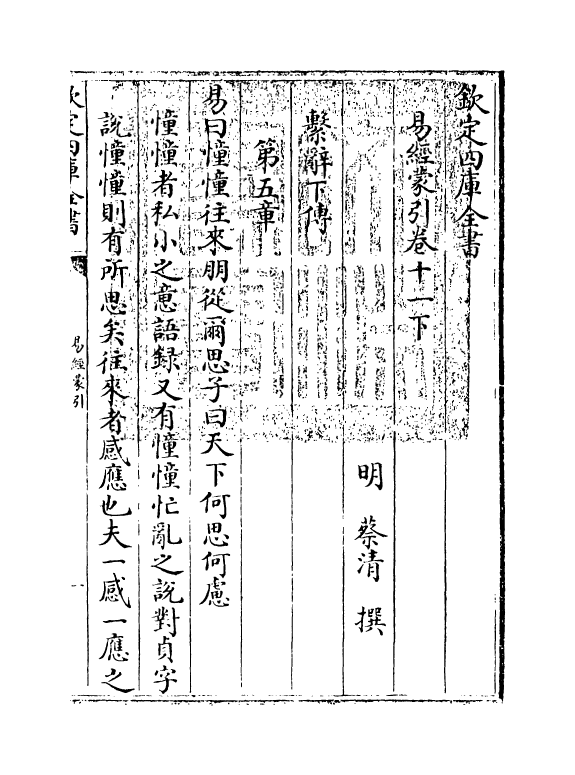 欽定四庫全書
易經蒙引卷十一下
明 蔡清 撰
繫辭下傳
第五章
易曰憧憧往來朋從爾思子曰天下何思何慮
憧憧者私小之意語録又有憧憧忙亂之說對貞字
說憧憧則有所思矣往來者感應也夫一感一應之
欽定四庫全書
易經蒙引
一